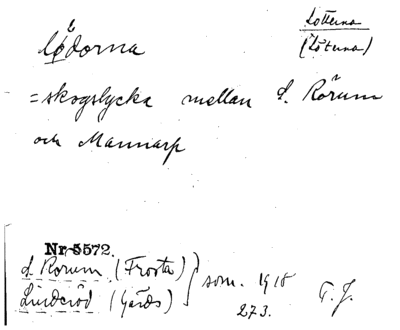 Lödorna
Lötterna
(Löterna)
=skogslycka mellan S. Rörum
och Mannarp
Nr 5572.
S. Rörum (Frosta)
Linderöd (Gärds)
som. 1918
273.